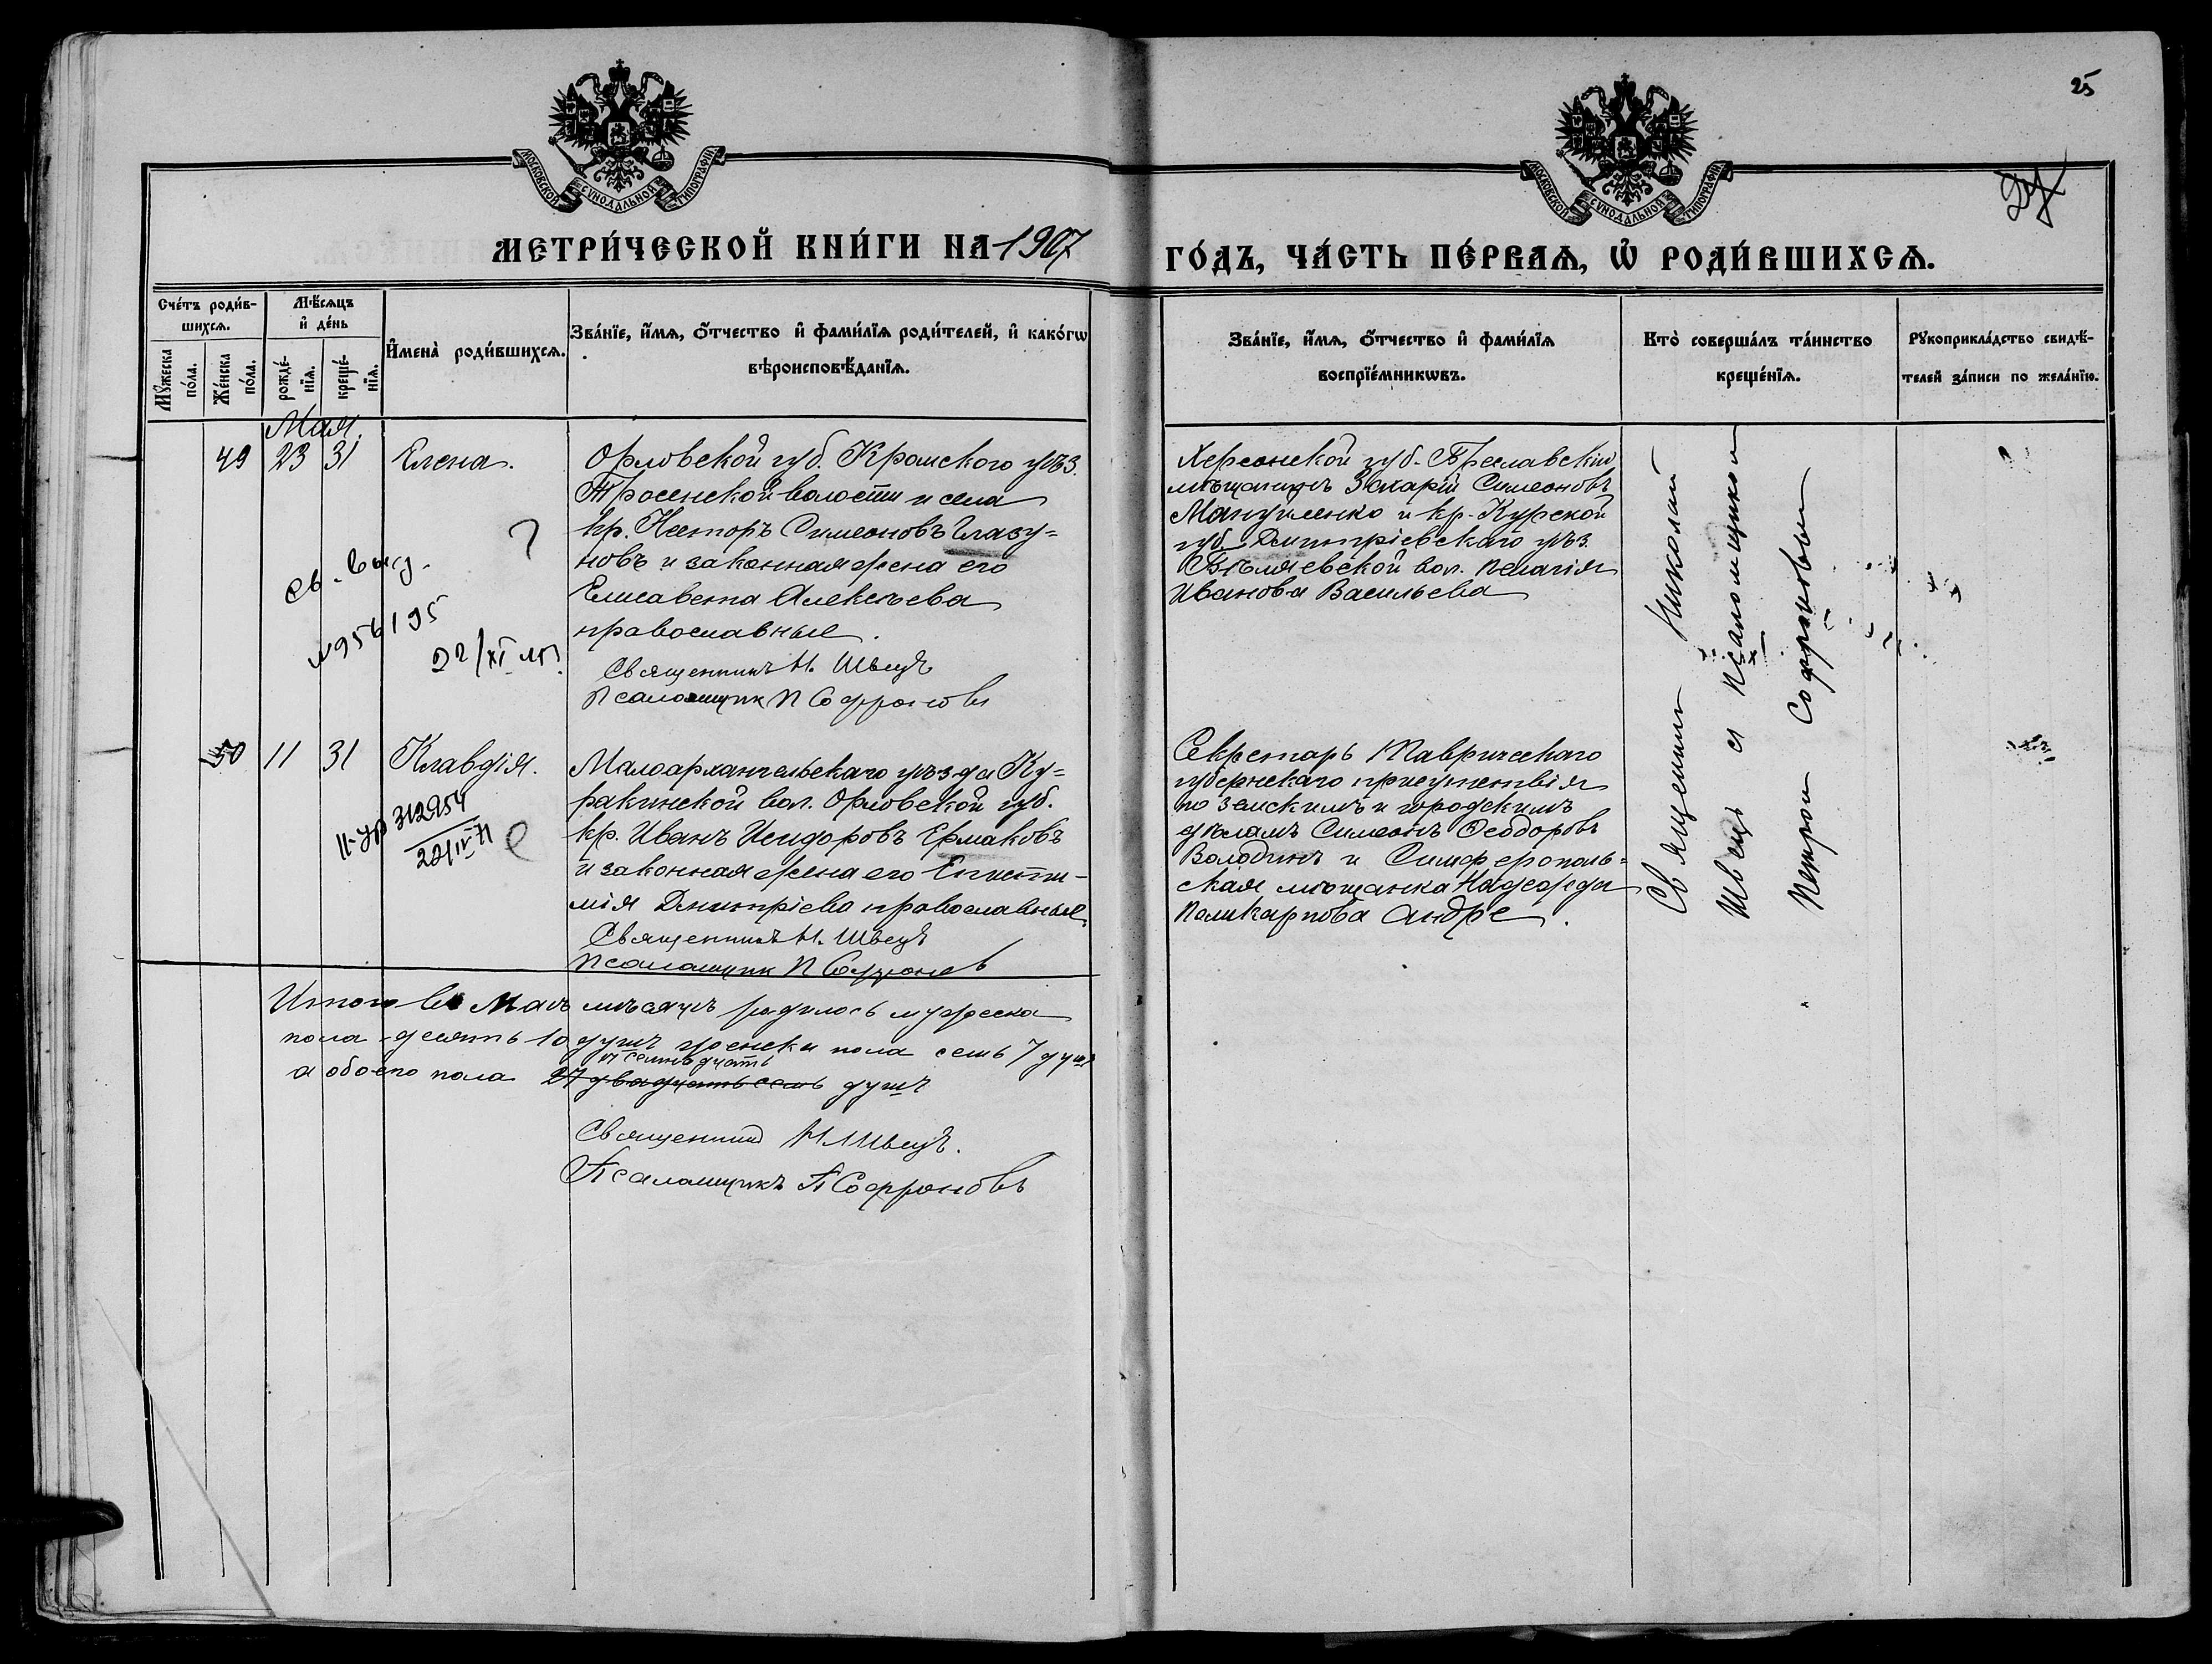 25
МОСКОВСКОЙ СѴНОДАЛЬНОЙ ТИПОГРАФІИ
МОСКОВСКОЙ СѴНОДАЛЬНОЙ ТИПОГРАФІИ
МЕТРИ́ЧЕСКОЙ КНИ́ГИ НА 1907
ГО́ДЪ, ЧА́СТЬ ПЕ́РВАѦ, Ѡ҆ РОДИ́ВШИХСѦ.
Сче́тъ роди́в-
шихсѧ.
Мꙋ́жеска
по́ла.
Же́нска
по́ла.
Мѣ́сѧцъ
и҆ де́нь
рожде́-
нїѧ.
креще́-
нїѧ.
И҆мена̀ роди́вшихсѧ.
Зва́нїе, и҆́мѧ, ѻ҆́тчество и҆ фами́лїѧ роди́телей, и҆ како́гѡ
вѣроисповѣ́данїѧ.
Зва́нїе, и҆́мѧ, ѻ҆́тчество и҆ фами́лїѧ
воспрїе́мникѡвъ.
Кто̀ соверша́лъ та́инство
креще́нїѧ.
Рꙋкоприкла́дство свидѣ́-
телей за́писи по жела́нїю.
Мая.
49 23 31 Елена.
Орловской губ. Кромского уѣз.
Тросенской волости и села
кр. Несторъ Симеоновъ Глазу=
новъ и законная жена его
Елисавета Алексѣева
православные.
Священникъ Н. Швецъ
Псаломщик П Софроновъ
св-. выд.
№956195
22/XI
?
Херсонской губ. Береславскій
мѣщанинъ Захарій Симеоновъ
Мануиленко и кр. Курской
губ. Дмитріевскаго уѣз.
вол. Пелагія
Иванова Васильева
50 11 31 Клавдія.
Малоархангельскаго уѣзда Ку=
ракинской вол. Орловской губ.
кр. Иванъ Исидоровъ Ермаковъ
и законная жена его Еписти-
мія Дмитріева православные.
Священникъ Н. Швецъ
Псаломщик П Софроновъ
II-УР 312954
Секретарь Таврическаго
губернскаго присутствія
по земскимъ и городскимъ
дѣламъ Симеонъ Ѳеодоровъ
Володинъ и Симферополь=
ская мѣщанка Надежда
Поликарпова Андре.
Священник Николай
Швецъ и Псаломщиком
Петром Софроновым
Итого въ Маѣ мѣсяцѣ родилось мужеска
пола десять 10 душъ женска пола семь 7 душъ
17 семнадцать
а обоего пола 27 двадцать семь душъ
Священник Н Швецъ.
Псаломщикъ П Софроновъ